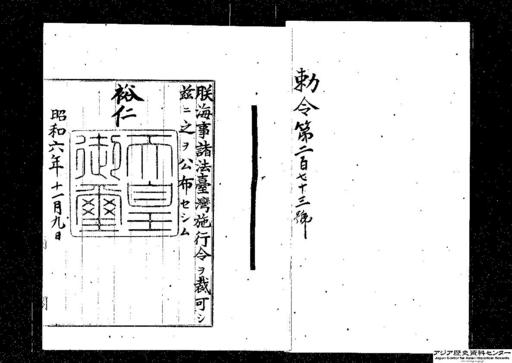 勅令第二百七十三號
朕海事諸法臺灣施行令ヲ裁可シ
茲ニ之ヲ公布セシム
裕仁
天皇
御璽
昭和六年十一月九日
アジア歴史資料センター
Japan Center for Asian Historical Records